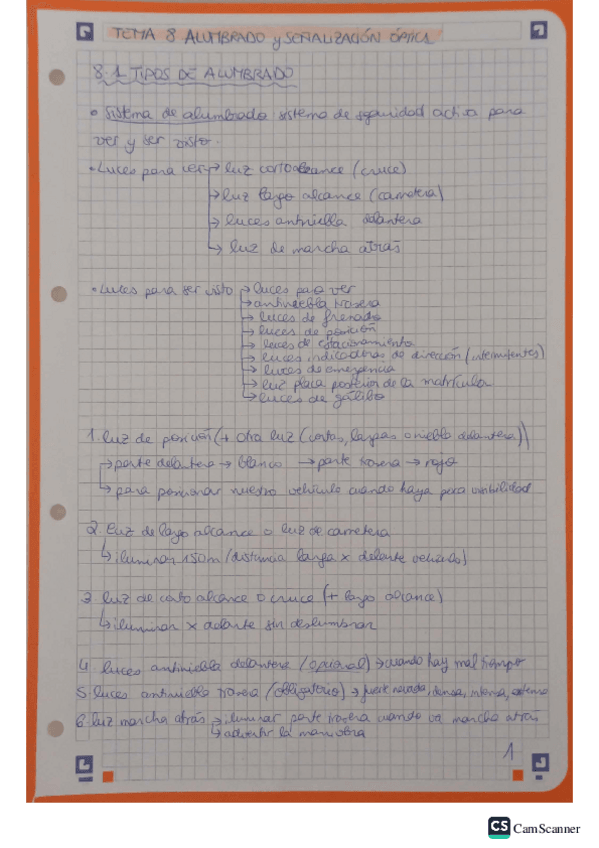 TEMA 8 ALUMBRADO y SEÑALIZACIÓN ÓPTICA
8.1 TIPOS DE ALUMBRADO
• Sistema de alumbrado sistema de seguridad activa para
ver y ser visto.
• Luces para ver → luz corto alcance (cruce)
→ luz largo alcance (carretera)
→ luces antiniebla delantera
→ luz de marcha atrás
• Luces para ser visto → luces para ver
→ antiniebla trasera
→ luces de frenado
→ luces de posición
→ luces de estacionamiento
→ luces indicadoras de dirección (intermitentes)
→ luces de emergencia
→ luz placa posterior de la matrícula
→ luces de gálibo
1. luz de posición (+ otra luz (cortas, largas o niebla delantera))
→ parte delantera → blanco → parte trasera → rojo
→ para posicionar nuestro vehículo cuando haya poca visibilidad
2. luz de largo alcance o luz de carretera
↳ iluminar 150m (distancia larga x delante vehículo)
3. luz de corto alcance o cruce (+ largo alcance)
↳ iluminar x delante sin deslumbrar
4. luces antiniebla delantera (opcional) → cuando hay mal tiempo
5. luces antiniebla trasera (obligatorio) → fuerte nevada, densa, intensa,
6. luz marcha atrás → iluminar parte trasera cuando va marcha atrás
↳ advertir la maniobra
1
CS CamScanner